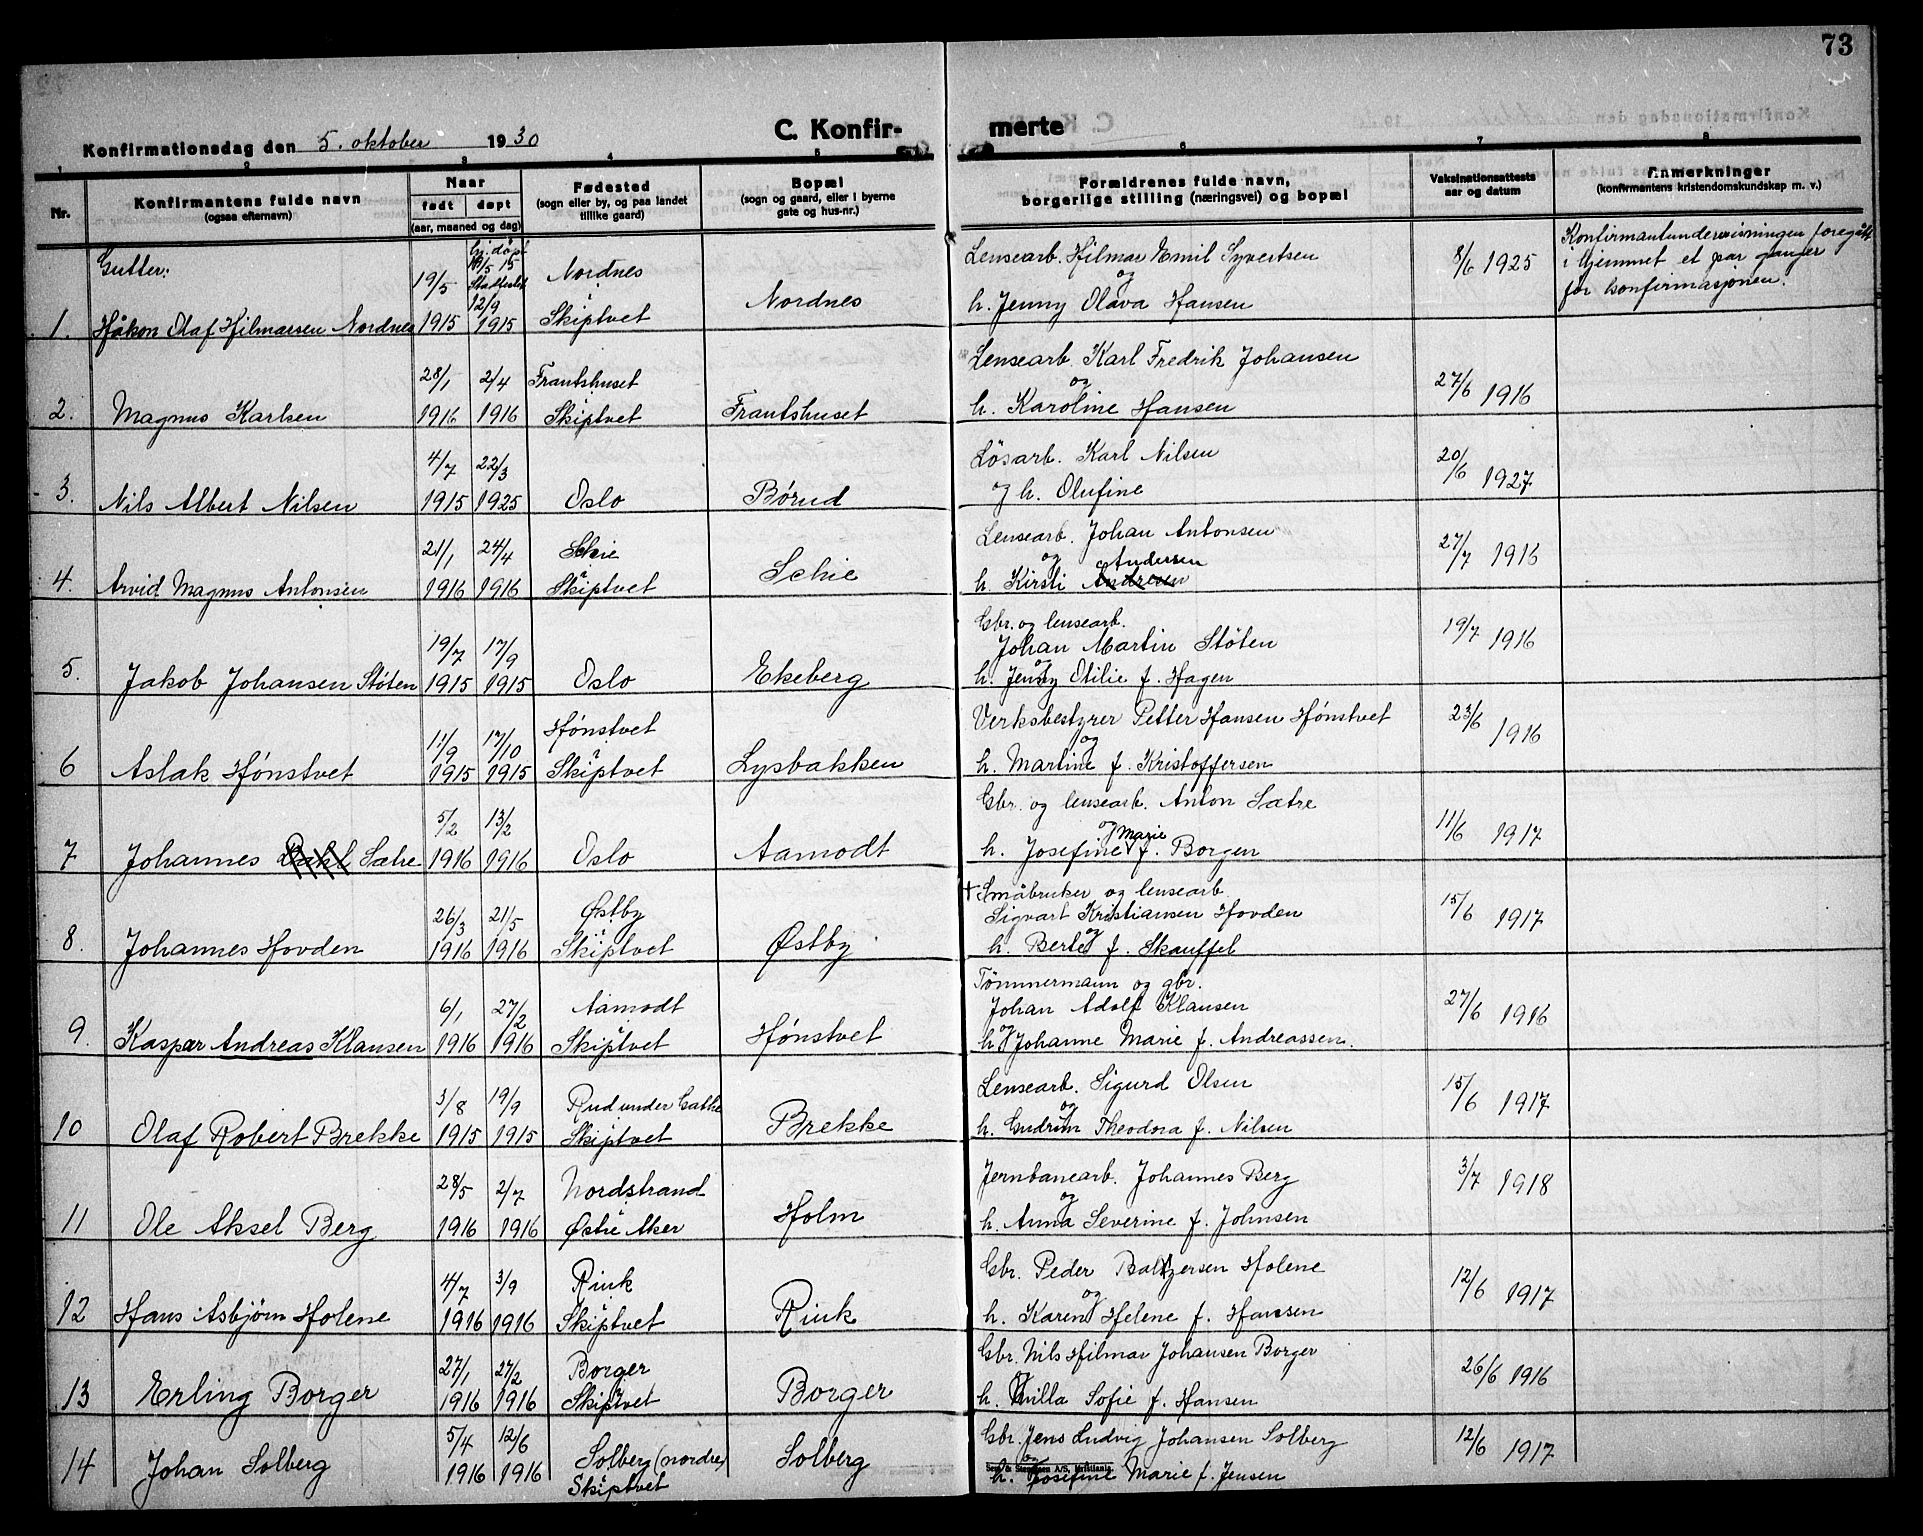 73
Konfirmationsdag den 5. oktober 1930
C. Konfir-
merte
1 2 3 4 5 6 7 8
Nr.
Konfirmantens fulde navn
(ogsaa efternavn)
Naar
født døpt
(aar, maaned og dag)
Fødested
(sogn eller by, og paa landet
tillike gaard)
Bopæl
(sogn og gaard, eller i byerne
gate og hus-nr.)
Forældrenes fulde navn,
borgerlige stilling (næringsvei) og bopæl
Vaksinationsattests
aar og datum
Anmerkninger
(konfirmantens kristendomskundskap m. v.)
Gutter:
1. Håkon Olaf Hilmarsen Nordnes
19/5 1915
hj. döpt 18/5 15
12/9 1915
Nordnes
Skiptvet
Nordnes
Lensearb. Hilmar Emil Syvertsen
og
h. Jenny Olava Hansen
8/6 1925
Konfirmantundervisningen foregått
i hjemmet et par ganger
før konfirmasjonen.
2. Magnus Karlsen
28/1 1916
2/4 1916
Frantshuset
Skiptvet
Frantshuset
Lensearb. Karl Fredrik Johansen
og
h. Karoline Hansen
27/6 1916
3. Nils Albert Nilsen
4/7 1915
22/3 1925
Oslo
Børud
Løsarb. Karl Nilsen
og h. Olufine
20/6 1927
4. Arvid Magnus Antonsen
21/1 1916
24/4 1916
Schie
Skiptvet
Schie
Lensearb. Johan Antonsen
og Andersen
h. Kirsti Andresen
27/7 1916
5. Jakob Johansen Støten
19/7 1915
17/9 1915
Oslo
Ekeberg
Gbr. og lensearb.
Johan Martin Støten
og
h. Jenny Otilie f. Hagen
19/7 1916
6 Aslak Hønstvet
11/9 1915
17/10 1915
Hønstvet
Skiptvet
Lysbakken
Verksbestyrer Petter Hansen Hønstvet
og
h. Martine f. Kristoffersen
23/6 1916
7 Johannes Dahl Sætre
5/2 1916
13/2 1916
Oslo
Aamodt
Gbr. og lensearb. Anton Sætre
og Marie
h. Josefine f. Borgen
11/6 1917
8. Johannes Hovden
26/3 1916
21/5 1916
Østby
Skiptvet
Østby
† Småbruker og lensearb.
Sigvart Kristiansen Hovden
og
h. Berte f. Skauffel
15/6 1917
9. Kaspar Andreas Klausen
6/1 1916
27/2 1916
Aamodt
Skiptvet
Hønstvet
Tömmermann og gbr.
Johan Adolf Klausen
og
h. Johanne Marie f. Andreassen.
27/6 1916
10 Olaf Robert Brekke
3/8 1915
19/9 1915
Rud under
Skiptvet
Brekke
Lensearb. Sigurd Olsen
og
h. Gudrun Theodora f. Nilsen
15/6 1917
11 Ole Aksel Berg
28/5 1916
2/7 1916
Nordstrand
Østre Aker
Holm
Jernbanearb. Johannes Berg
og
h. Anna Severine f. Johnsen
3/7 1918
12 Hans Asbjørn Holene
4/7 1916
3/9 1916
Rink
Skiptvet
Rink
Gbr. Peder Baltzersen Holene
og
h. Karen Helene f. Hansen
12/6 1917
13 Erling Borger
27/1 1916
27/2 1916
Borger
Skiptvet
Borger
Gbr. Nils Hilmar Johansen Borger
h. Sofie f. Hansen
26/6 1916
14 Johan Solberg
5/4 1916
12/6 1916
Solberg (nordre)
Skiptvet
Solberg
Gbr. Jens Ludvig Johansen Solberg
og
h. Josefine Marie f. Jensen
12/6 1917